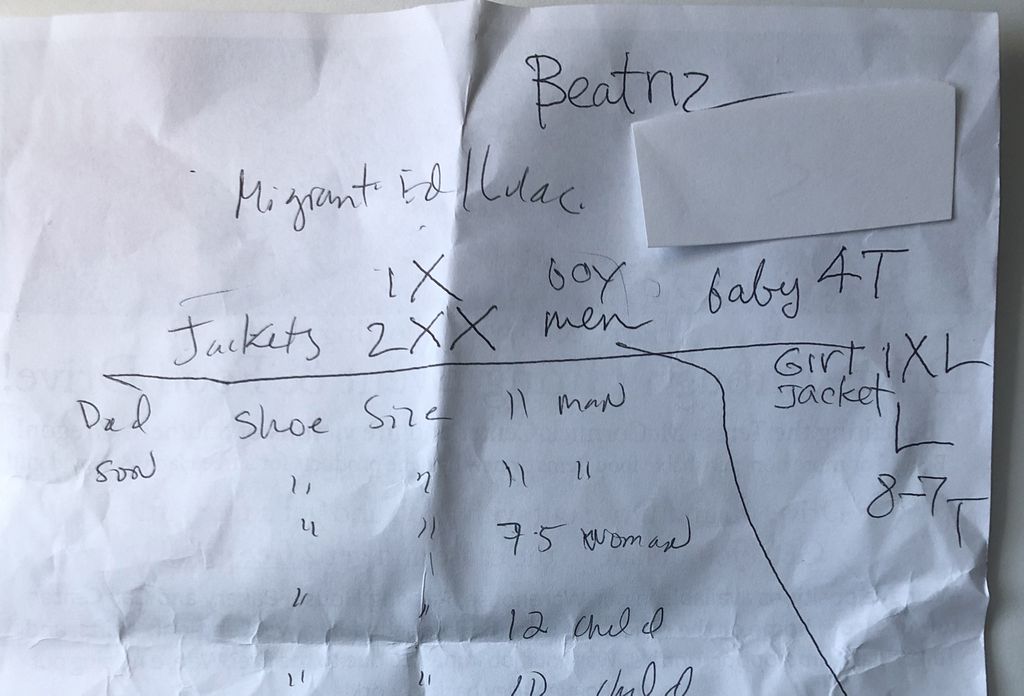 Beatriz
Migrant Ed/Lulac.
1X boy
baby 4T
Jackets 2XX men
Girl 1XL
Jacket
L
8-7T
Dad shoe size 11 man
soon " " 11 "
" " 7.5 woman
" " 12 child
" " 10 child